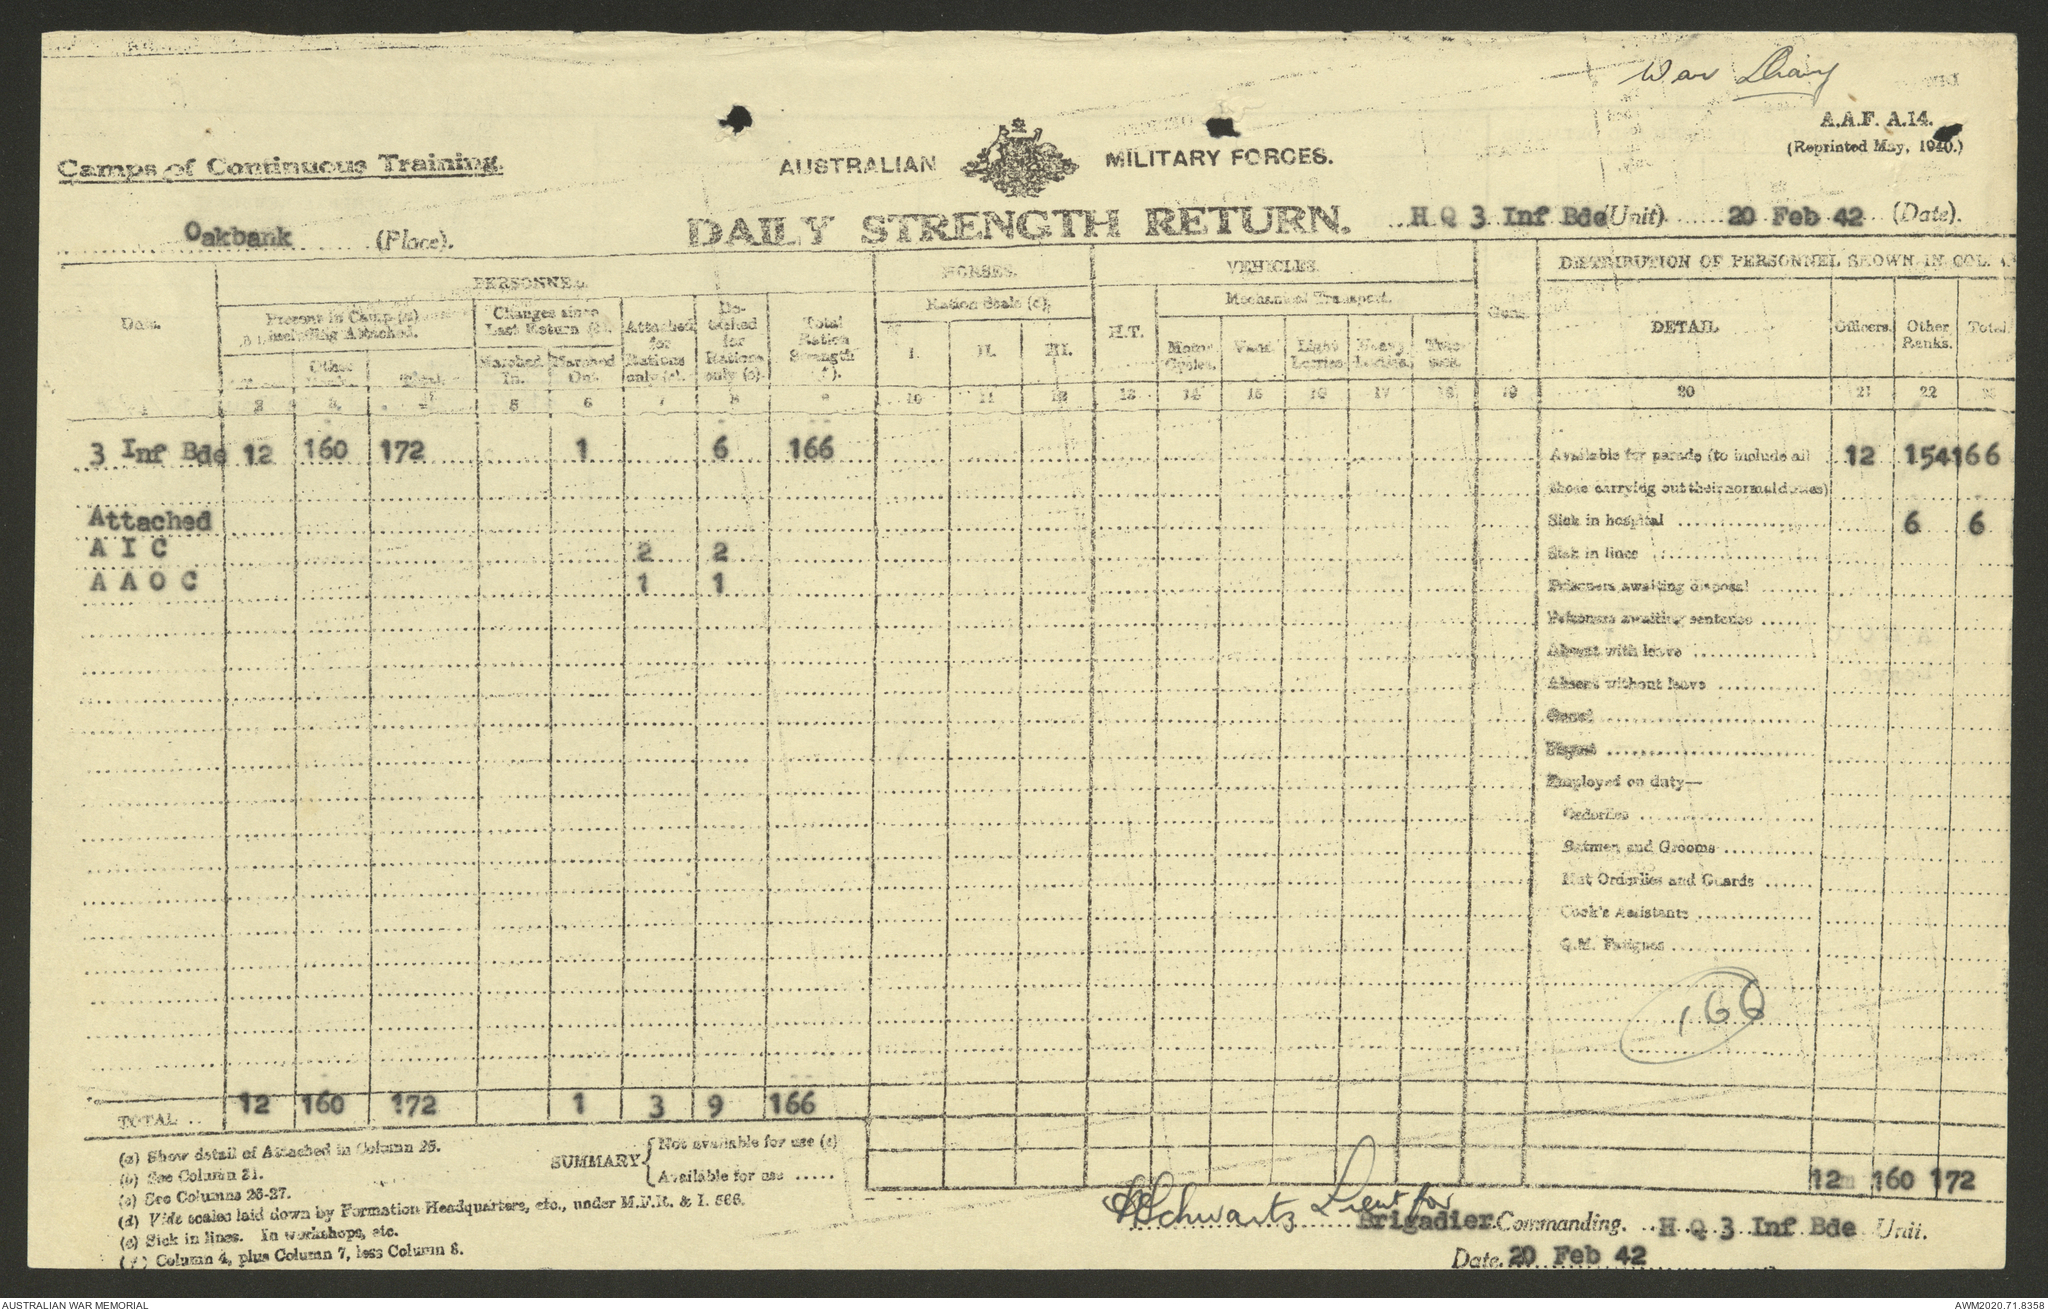 War Diary
A.A.F. A.14.
(Reprinted May, 1940.)
Camps of Continuous Training.
AUSTRALIAN MILITARY FORCES.
Oakbank (Place).
DAILY STRENGTH RETURN.
H Q 3 Inf Bde (Unit). 20 Feb 42 (Date).
PERSONNEL.
HORSES.
VEHICLES.
DISTRIBUTION OF PERSONNEL SHOWN IN COL.
Present in Camp (a)
including Attached.
Changes since
Last Return (b).
Attached
for
Rations
only (c).
De-
tached
for
Rations
only (c).
Total
Ration
Strength
(f).
Ration Scale (c).
H.T.
Mechanical Transport.
Guns.
DETAIL
Officers.
Other
Ranks.
Total.
Other
Ranks.
Total.
Marched
In.
Marched
Out.
I. II. III.
Motor
Cycles.
Vans.
Light
Lorries.
Heavy
Lorries.
2 3 4 5 6 7 8 9 10 11 12 13 14 15 16 17 18 19 20 21 22
3 Inf Bde 12 160 172 1 6 166
Available for parade (to include all 12 154 166
those carrying out their normal duties)
Attached
Sick in hospital 6 6
A I C 2 2
Sick in lines
A A O C 1 1
Prisoners awaiting disposal
Prisoners awaiting sentence
Absent with leave
Absent without leave
Gaol
Employed on duty—
Orderlies
Batmen and Grooms
Hut Orderlies and Guards
Cook's Assistants
Q.M. Fatigues
166
TOTAL 12 160 172 1 3 9 166
SUMMARY
Not available for use (e)
Available for use
12 160 172
(a) Show detail of Attached in Column 25.
(b) See Column 31.
(c) See Columns 26-27.
(d) Vide scales laid down by Formation Headquarters, etc., under M.F.R. & I. 566.
(e) Sick in lines. In workshops, etc.
(f) Column 4, plus Column 7, less Column 8.
Schwartz Lieut for
Brigadier Commanding. H Q 3 Inf Bde Unit.
Date. 20 Feb 42
AUSTRALIAN WAR MEMORIAL
AWM2020.71.8358